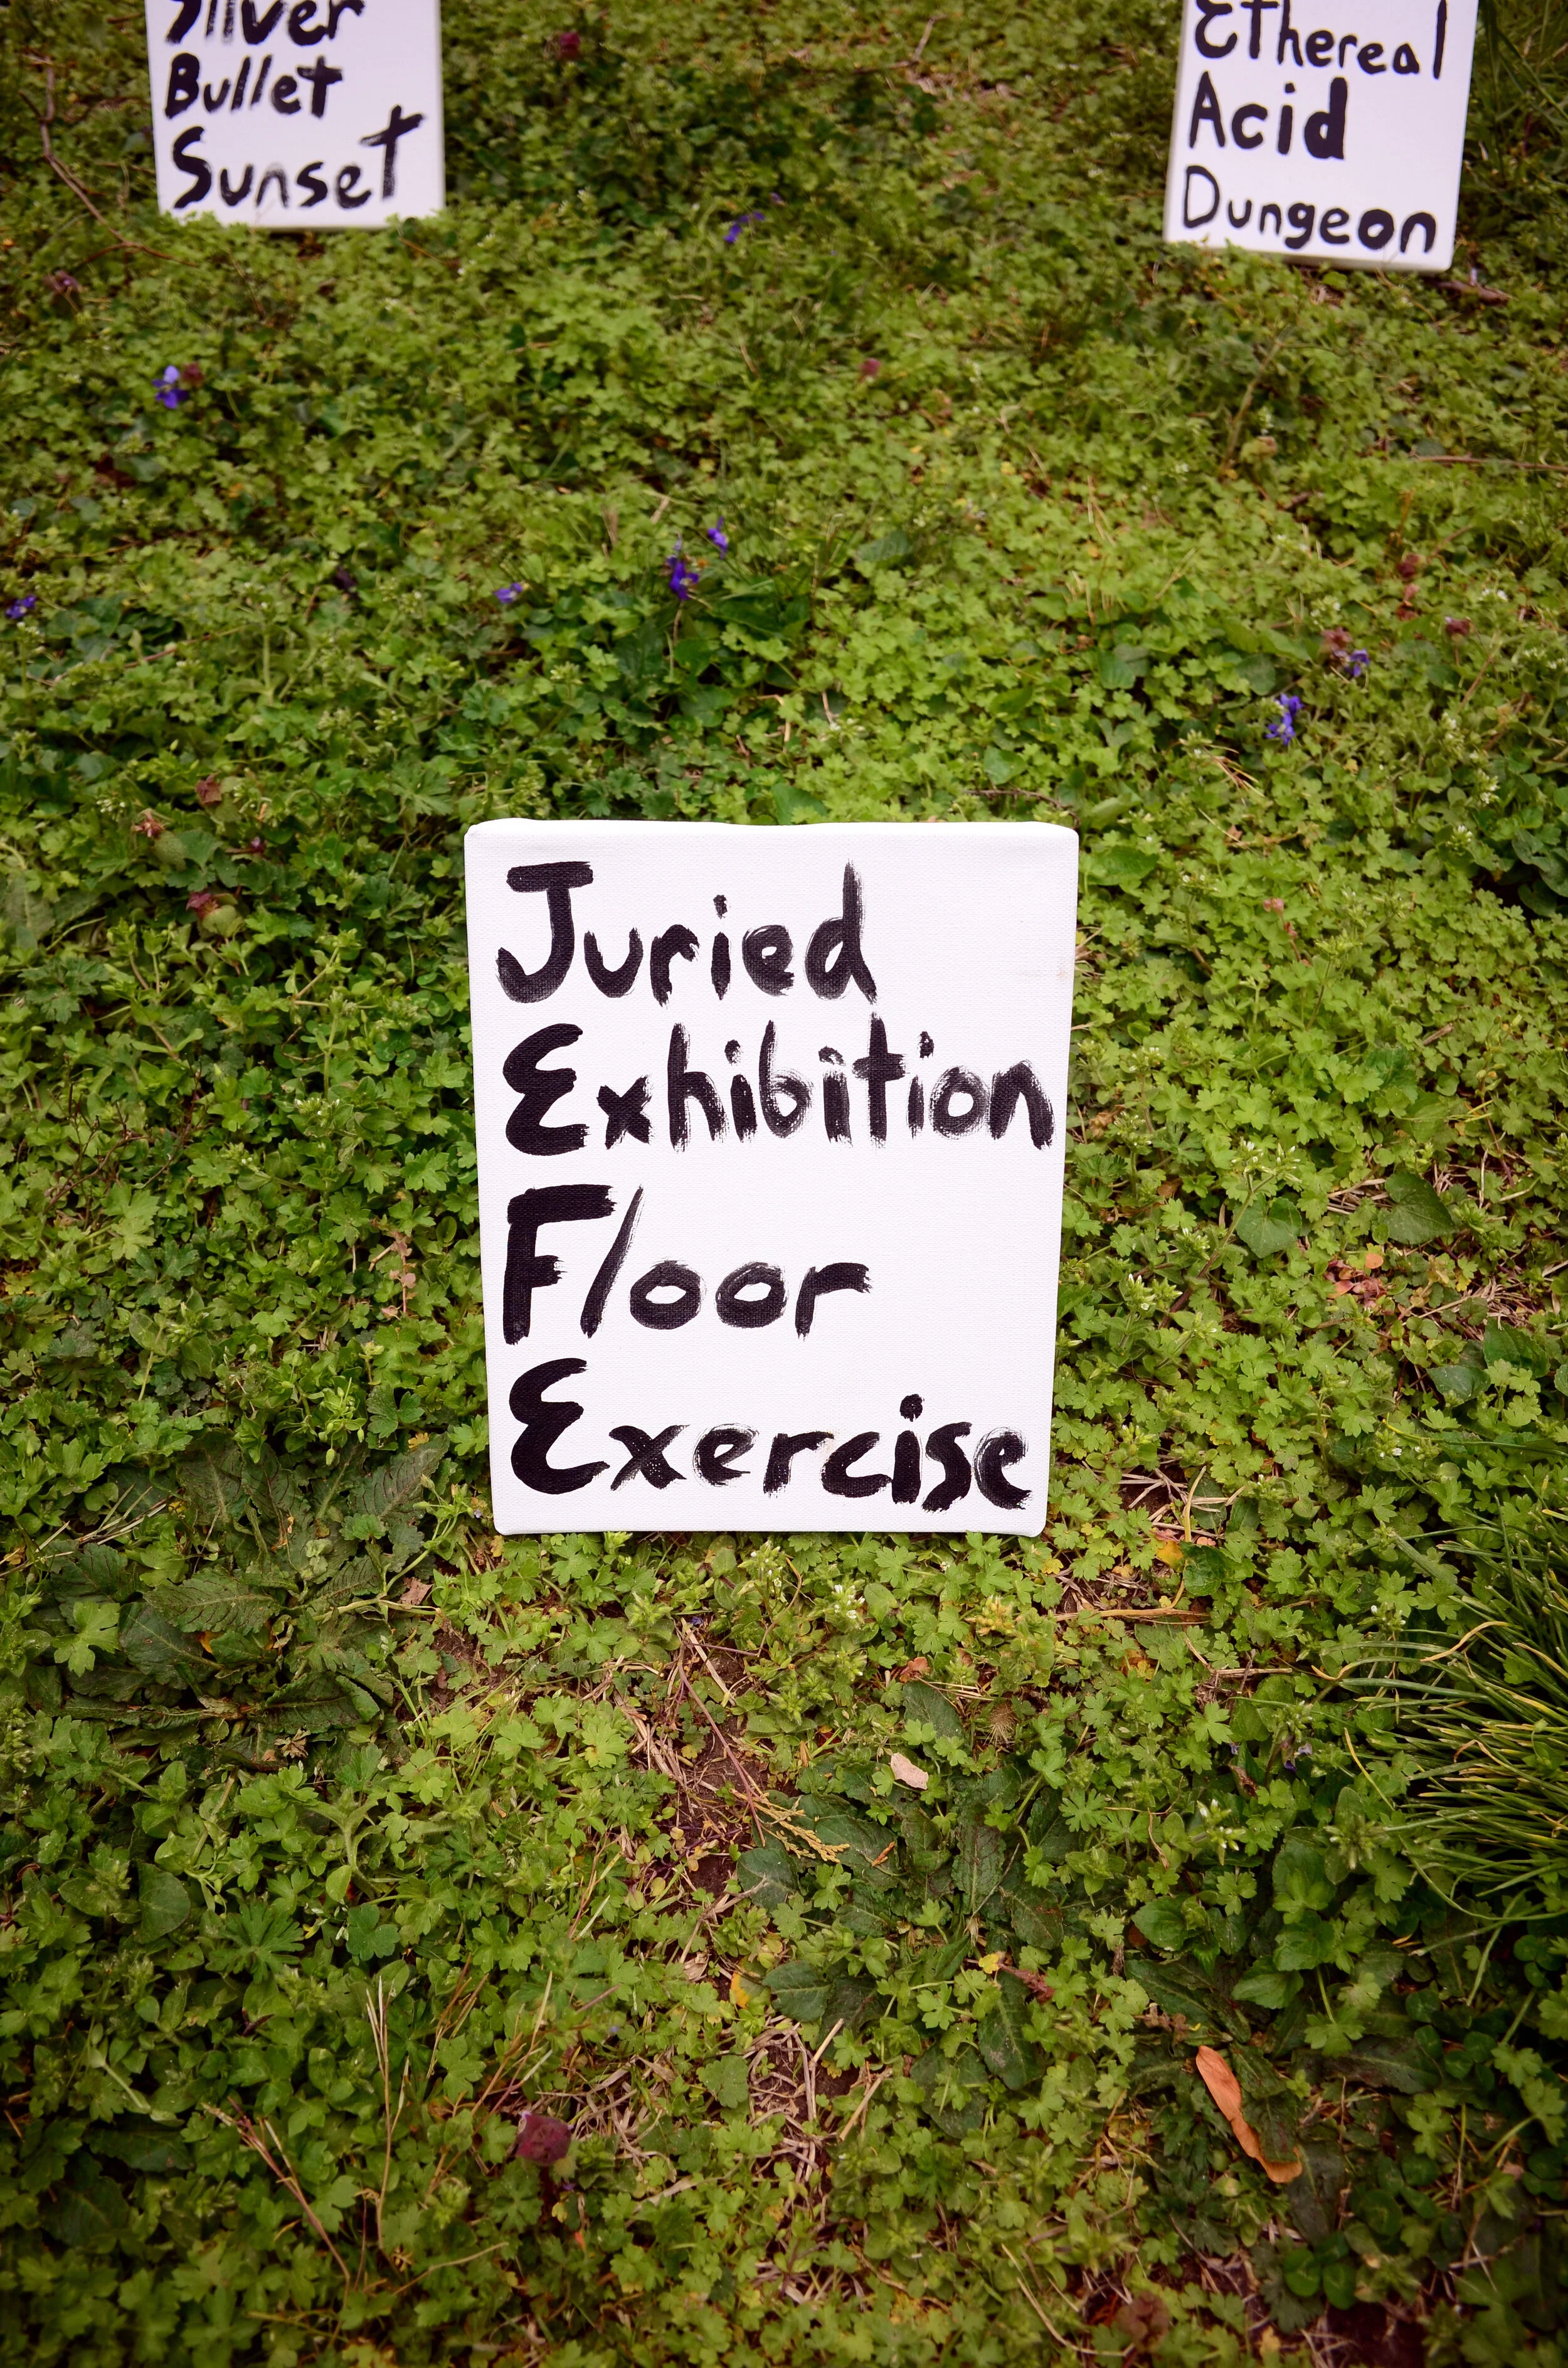 Silver
Bullet
Sunset
Ethereal
Acid
Dungeon
Juried
Exhibition
Floor
Exercise